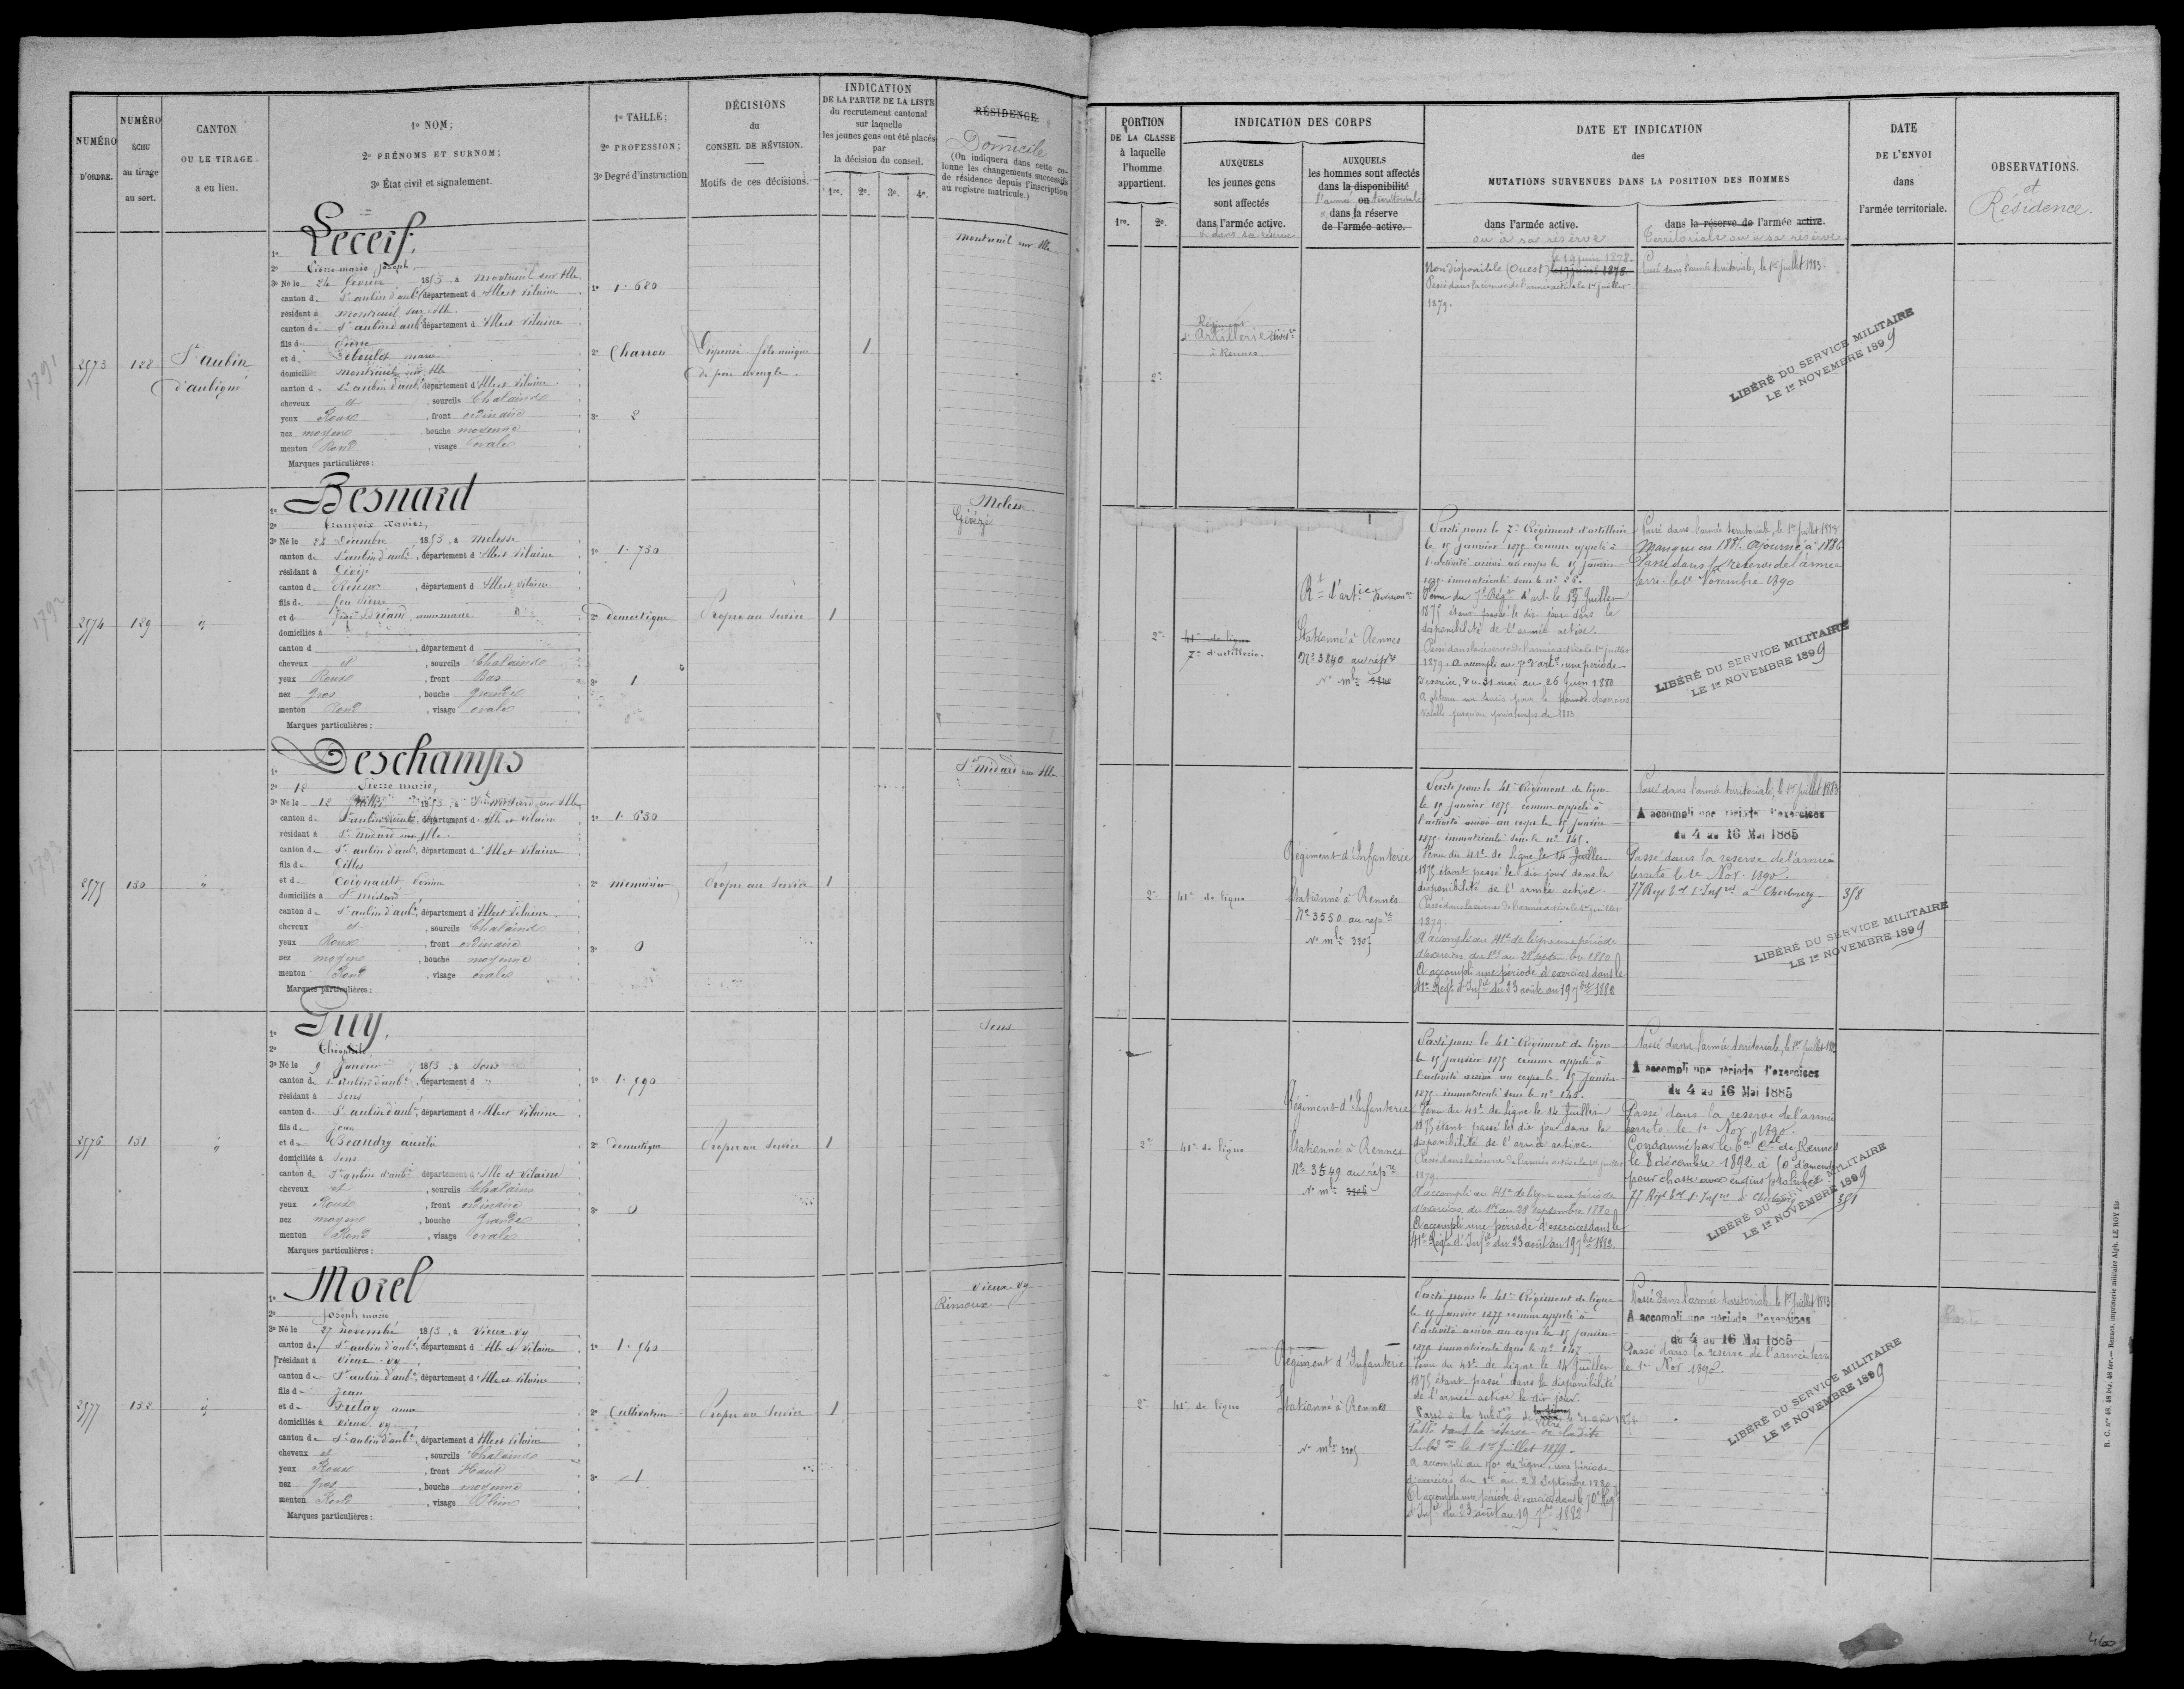 NUMÉRO D'ORDRE.
NUMÉRO ÉCHU au tirage au sort.
CANTON OU LE TIRAGE a eu lien.
1º NOM;
2º PRÉNOMS ET SURNOM;
3º État civil et signalement.
1º TAILLE;
2º PROFESSION;
3º Degré d'instruction
DÉCISIONS
du
CONSEIL DE RÉVISION.
Motifs de ces décisions.
INDICATION
DE LA PARTIE DE LA LISTE
du recrutement cantonal
sur laquelle
les jeunes gens ont été placés
par
la décision du conseil.
1re. 2e. 3e. 4e.
RÉSIDENCE.
Domicile
(On indiquera dans cette colonne les changements successifs de résidence depuis l'inscription au registre matricule.)
PORTION
DE LA CLASSE
à laquelle
l'homme
appartient.
1re. 2e.
INDICATION DES CORPS
AUXQUELS
les jeunes gens
sont affectés
dans l'armée active.
& dans sa réserve
AUXQUELS
les hommes sont affectés
dans la disponibilité
l'armée ou territoriale
& dans la réserve
de l'armée active.
DATE ET INDICATION
des
MUTATIONS SURVENUES DANS LA POSITION DES HOMMES
dans l'armée active.
ou à sa réserve
dans la réserve de l'armée active.
Territoriale ou à sa réserve
DATE
DE L'ENVOI
dans
l'armée territoriale.
OBSERVATIONS.
et
Résidence.
1791
2573 128 St aubin d'aubigné
1º Lecerf,
2º Pierre marie joseph.
3º Né le 24 février 1853, à Montreuil sur Ille
canton de St aubin d'aubé, département d Ille et vilaine
résidant à Montreuil sur Ille
canton de St aubin d'aubé, département d Ille et vilaine
fils de Pierre
et de marie
domicilié Montreuil sur Ille
canton de St aubin d'aubé, département d Ille et vilaine
cheveux et , sourcils Chatains
yeux Roux , front ordinaire
nez moyen , bouche moyenne
menton Rond , visage ovale
Marques particulières :
1º 1.680
2º Charron
3º 2
Dispensé fils unique
de père aveugle.
1
Montreuil sur Ille
2e
Régiment
d'Artillerie divisre
à Rennes
le 19 juin 1878.
Non disponible (Ouest)
Passé dans la réserve de l'armée active le 1er juillet
1879.
Passé dans l'armée territoriale, le 1er juillet 1883.
LIBÉRÉ DU SERVICE MILITAIRE
LE 1er NOVEMBRE 1899
1792
2574 129 "
1º Besnard
2º François Xavier,
3º Né le 22 Décembre 1853, à Melesse
canton de St aubin d'aubé, département d Ille et vilaine
résidant à Gévezé
canton de Rennes , département d Ille et vilaine
fils de feu Pierre
et de annemarie
domiciliés à
canton d , département d
cheveux et , sourcils Chatains
yeux Roux , front Bas
nez Gros , bouche grande
menton Rond , visage ovale
Marques particulières :
1º 1.730
2º domestique
3º 1
Propre au Service
1
Melesse
Gévezé
2e
41e de ligne
7e d'artillerie.
Rt d'artie Divisionre
Stationné à Rennes
No 3840 au répre
No mle
Parti pour le 7e Régiment d'artillerie
le 15 janvier 1875 comme appelé à
l'activité arrivé au corps le 15 janvier
1875 immatriculé sous le no 26.
Venu du 7e Régt d'art. le 13 Juillet
1875 étant passé le dit jour dans la
disponibilité de l'armée active.
Passé dans la réserve de l'armée active le 1er juillet
1879. A accompli au 7e d'artie une période
d'exercice, du 31 mai au 26 Juin 1880
A obtenu un sursis pour la période d'exercices
valable jusqu'au printemps de 1883
Passé dans l'armée territoriale, le 1er juillet 1883
Manque en 1885. Ajourné à 1886
Passé dans la réserve de l'armée
terre. le 1er Novembre 1890
LIBÉRÉ DU SERVICE MILITAIRE
LE 1er NOVEMBRE 1899
1793
2575 130 "
1º Deschamps
2º Pierre marie,
3º Né le 12 1853, à St médard sur Ille
canton de St aubin d'aubé, département d Ille et vilaine
résidant à St médard sur Ille
canton de St aubin d'aubé, département d Ille et vilaine
fils de Gilles
et de Coignault
domiciliés à St médard
canton de St aubin d'aubé, département d Ille et vilaine
cheveux et , sourcils Chatains
yeux Roux , front ordinaire
nez moyen , bouche moyenne
menton Rond , visage ovale
Marques particulières :
1º 1.630
2º menuisier
3º 0
Propre au Service
1
St médard sur Ille
2e
41e de ligne
Régiment d'Infanterie
Stationné à Rennes
No 3550 au répre
No mle 3305
Parti pour le 41e Régiment de ligne
le 15 janvier 1875 comme appelé à
l'activité arrivé au corps le 15 janvier
1875 immatriculé sous le no 145.
Venu du 41e de Ligne le 14 Juillet
1875 étant passé le dit jour dans la
disponibilité de l'armée active
Passé dans la réserve de l'armée active le 1er juillet
1879.
A accompli au 41e de ligne une période
d'exercices du 1er au 28 septembre 1880
A accompli une période d'exercices dans le
41e Régt d'Infie du 23 août au 19 7bre 1882
Passé dans l'armée territoriale, le 1er juillet 1883
A accompli une période d'exercices
du 4 au 16 Mai 1885
Passé dans la réserve de l'armée
territe le 1er Nov. 1890.
77 Regt Eal d'Infrie à Cherbourg. 358
LIBÉRÉ DU SERVICE MILITAIRE
LE 1er NOVEMBRE 1899
1794
2576 131 "
1º Guy,
2º Théophile,
3º Né le 9 Janvier 1853, à Sens
canton de St aubin d'aubé, département d "
résidant à Sens
canton de St aubin d'aubé, département d Ille et vilaine
fils de Jean
et de Beaudry
domiciliés à Sens
canton de St aubin d'aubé, département d Ille et vilaine
cheveux et , sourcils Chatains
yeux Roux , front ordinaire
nez moyen , bouche Grande
menton Rond , visage ovale
Marques particulières :
1º 1.590
2º domestique
3º 0
Propre au Service
1
Sens
2e
41e de ligne
Régiment d'Infanterie
Stationné à Rennes
No 3549 au répre
No mle
Parti pour le 41e Régiment de ligne
le 15 janvier 1875 comme appelé à
l'activité arrivé au corps le 15 janvier
1875 immatriculé sous le no 146.
Venu du 41e de Ligne le 14 Juillet
1875 étant passé le dit jour dans la
disponibilité de l'armée active
Passé dans la réserve de l'armée active le 1er juillet
1879.
A accompli au 41e de ligne une période
d'exercices du 1er au 28 septembre 1880
A accompli une période d'exercices dans le
41e Régt d'Infie du 23 août au 19 7bre 1882.
Passé dans l'armée territoriale, le 1er juillet 1883
A accompli une période d'exercices
du 4 au 16 Mai 1885
Passé dans la réserve de l'armée
territe le 1er Nov 1890.
Condamné par le tal cel de Rennes
le 8 décembre 1892 à 50f d'amende
pour chasse avec engins prohibés
77 Regt Eal d'Infrie à Cherbourg 351
LIBÉRÉ DU SERVICE MILITAIRE
LE 1er NOVEMBRE 1899
1795
2577 132 "
1º Morel
2º Joseph marie
3º Né le 27 novembre 1853, à Vieux-vy
canton de St aubin d'aubé, département d Ille et vilaine
résidant à Vieux-vy
canton de St aubin d'aubé, département d Ille et vilaine
fils de Jean
et de Frelay anne
domiciliés à Vieux-vy
canton de St aubin d'aubé, département d Ille et vilaine
cheveux et , sourcils Chatains
yeux Roux , front Haut
nez gros , bouche moyenne
menton Rond , visage Plein
Marques particulières :
1º 1.540
2º Cultivateur
3º 1
Propre au Service
1
Vieux-vy
Rimoux
2e
41e de ligne
Régiment d'Infanterie
Stationné à Rennes
No mle 3305
Parti pour le 41e Régiment de ligne
le 15 Janvier 1875 comme appelé à
l'activité arrivé au corps le 15 janvier
1875 immatriculé sous le no 147
Venu du 41e de Ligne le 14 Juillet
1875 étant passé dans la disponibilité
de l'armée active le dit jour.
Passé à la subdon de Vitré le 31 août
Passé dans la réserve de ladite
Subdon le 1er Juillet 1879.
A accompli au 70e de ligne une période
d'exercices du 1er au 28 Septembre 1880
A accompli une période d'exercices dans le 70e Régt
d'Infie du 23 août au 19 7bre 1882
Passé dans l'armée territoriale, le 1er juillet 1883
A accompli une période d'exercices
du 4 au 16 Mai 1885
Passé dans la réserve de l'armée terre
le 1er Nov 1890.
LIBÉRÉ DU SERVICE MILITAIRE
LE 1er NOVEMBRE 1899
R. C. nos 48, 48 bis, 48 ter. — Rennes, imprimerie militaire Alph. LE ROY fils
460